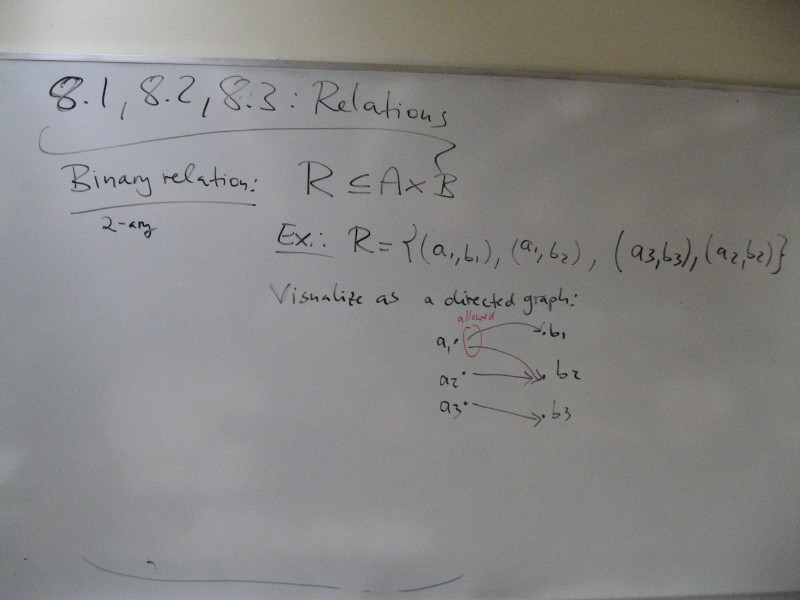 8.1, 8.2, 8.3: Relations
Binary relation: R ⊆ A × B
2-ary
Ex.: R = {(a₁,b₁), (a₁,b₂), (a₃,b₃), (a₂,b₂)}
Visualize as a directed graph:
allowed
a₁ b₁
a₂ b₂
a₃ b₃